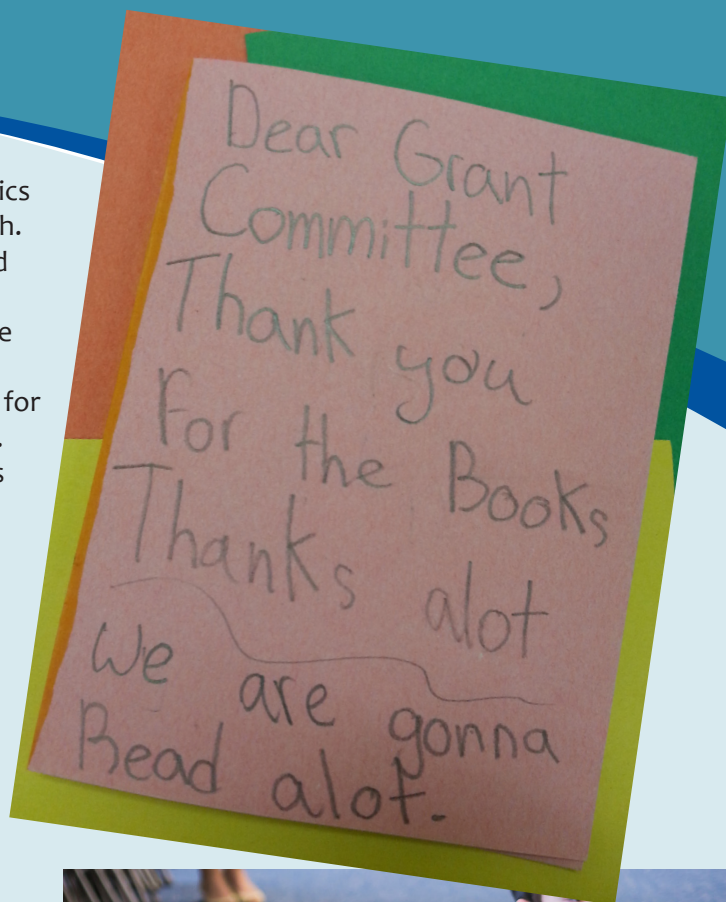 ics
h.
d
e
for
.
s
Dear Grant
Committee,
Thank you
For the Books
Thanks alot
We are gonna
Read alot.